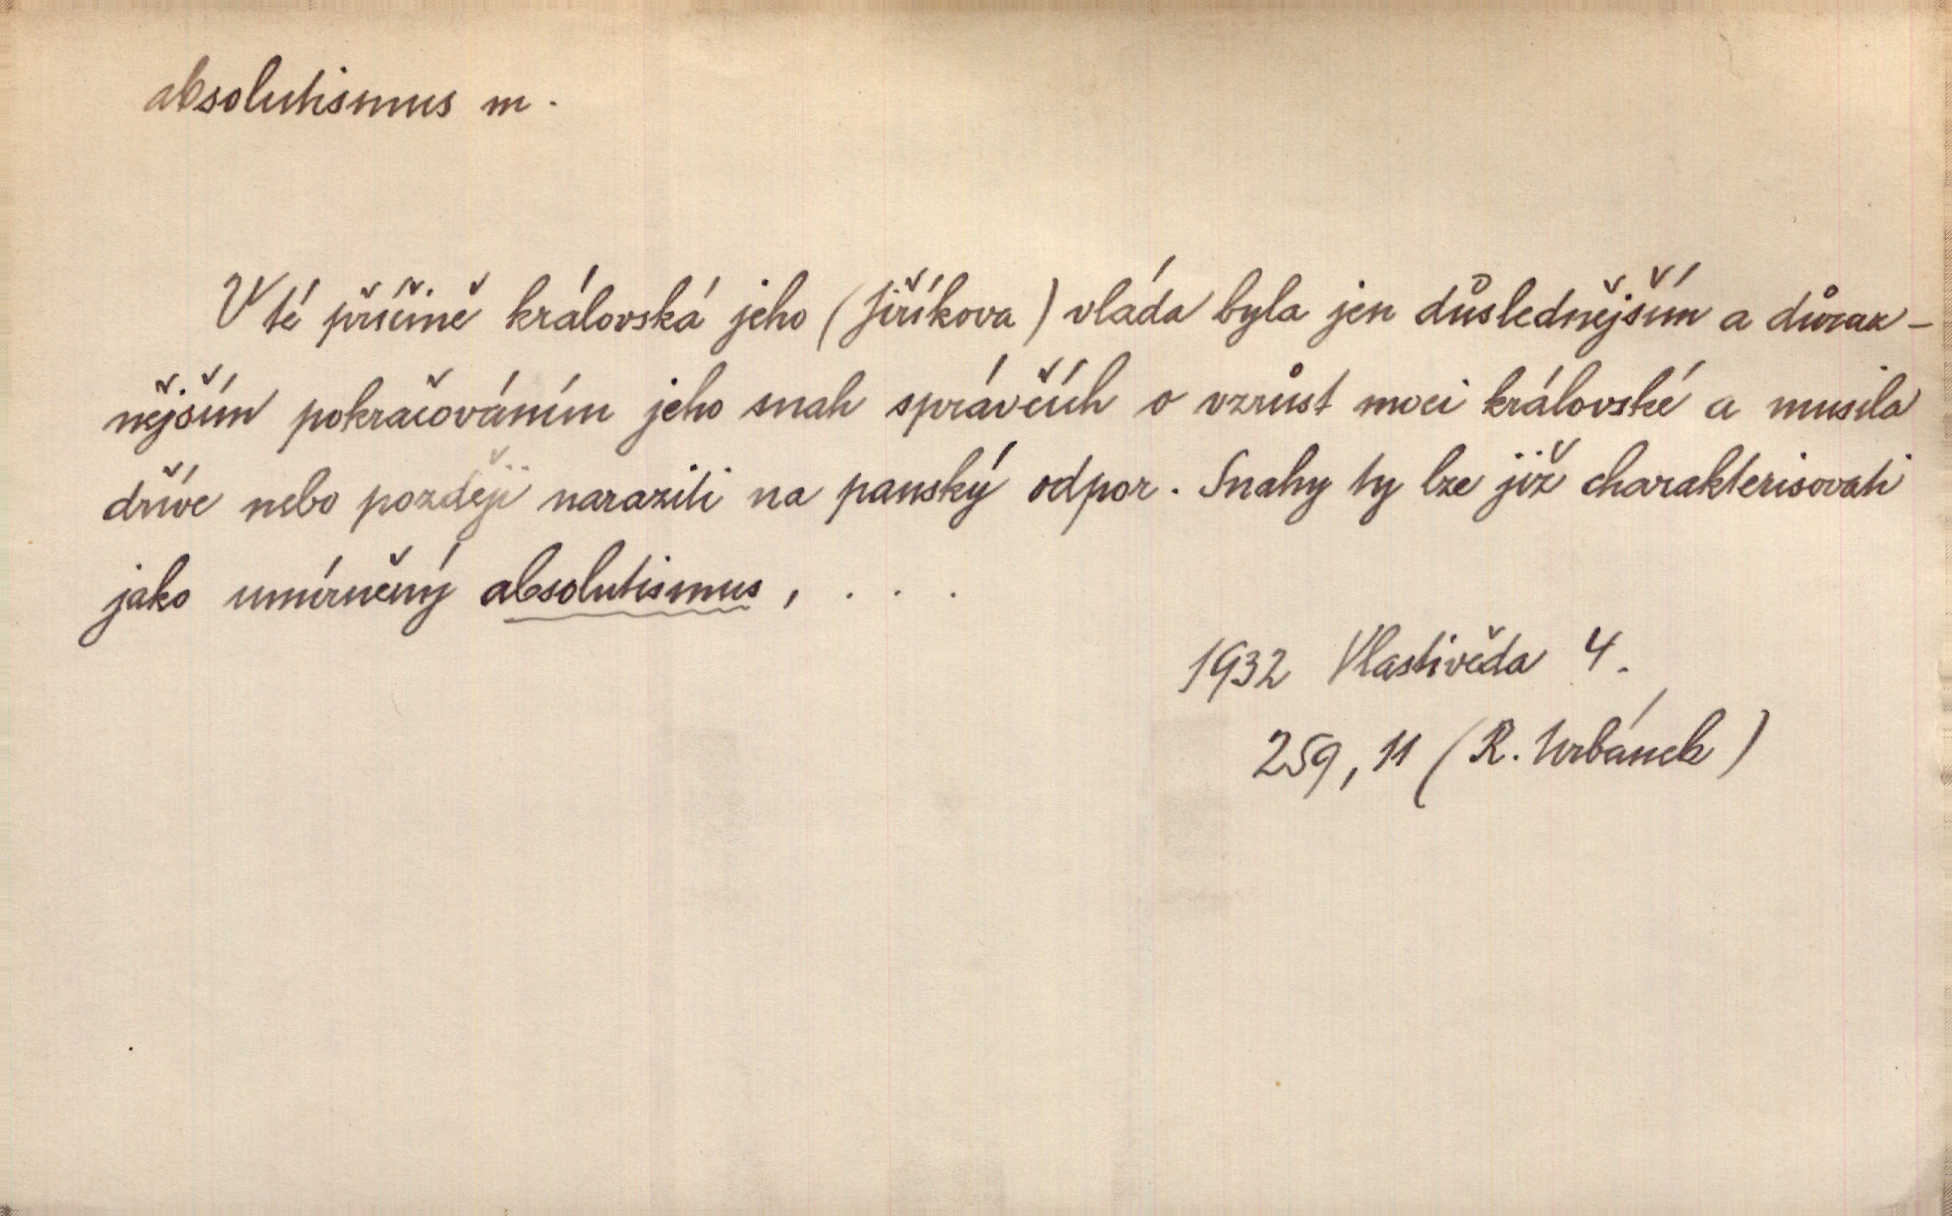 absolutismus m.
V té příčině královská jeho (Jiříkova) vláda byla jen důslednějším a důraz-
nějším pokračováním jeho snah správčích o vzrůst moci královské a musila
dříve nebo později naraziti na panský odpor. Snahy ty lze již charakterisovati
jako umírněný absolutismus, . . .
1932 Vlastivěda 4.
259, 11 (R. Urbánek)